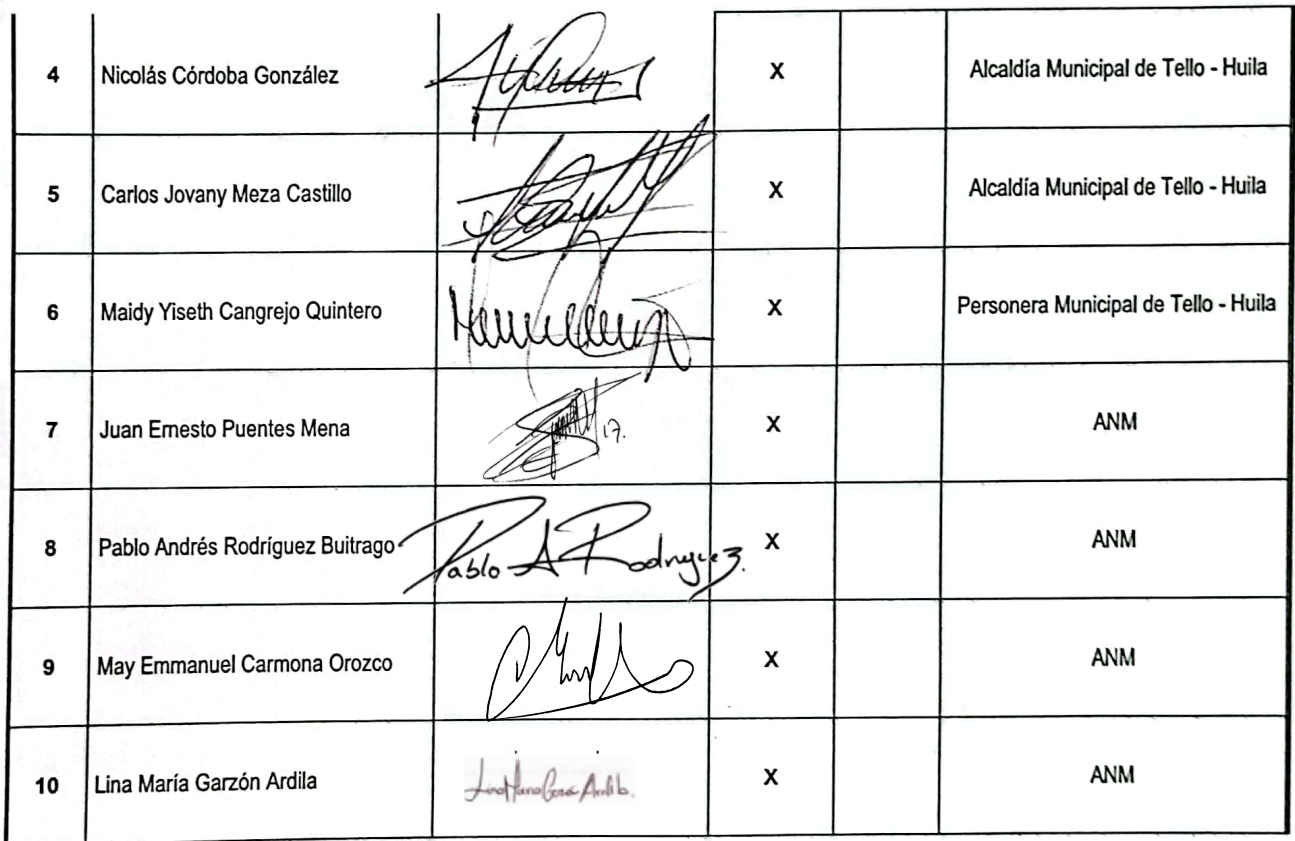 4 Nicolás Córdoba González X Alcaldía Municipal de Tello - Huila
5 Carlos Jovany Meza Castillo X Alcaldía Municipal de Tello - Huila
6 Maidy Yiseth Cangrejo Quintero X Personera Municipal de Tello - Huila
7 Juan Ernesto Puentes Mena 17. X ANM
8 Pablo Andrés Rodríguez Buitrago Pablo A Rodriguez. X ANM
9 May Emmanuel Carmona Orozco X ANM
10 Lina María Garzón Ardila X ANM